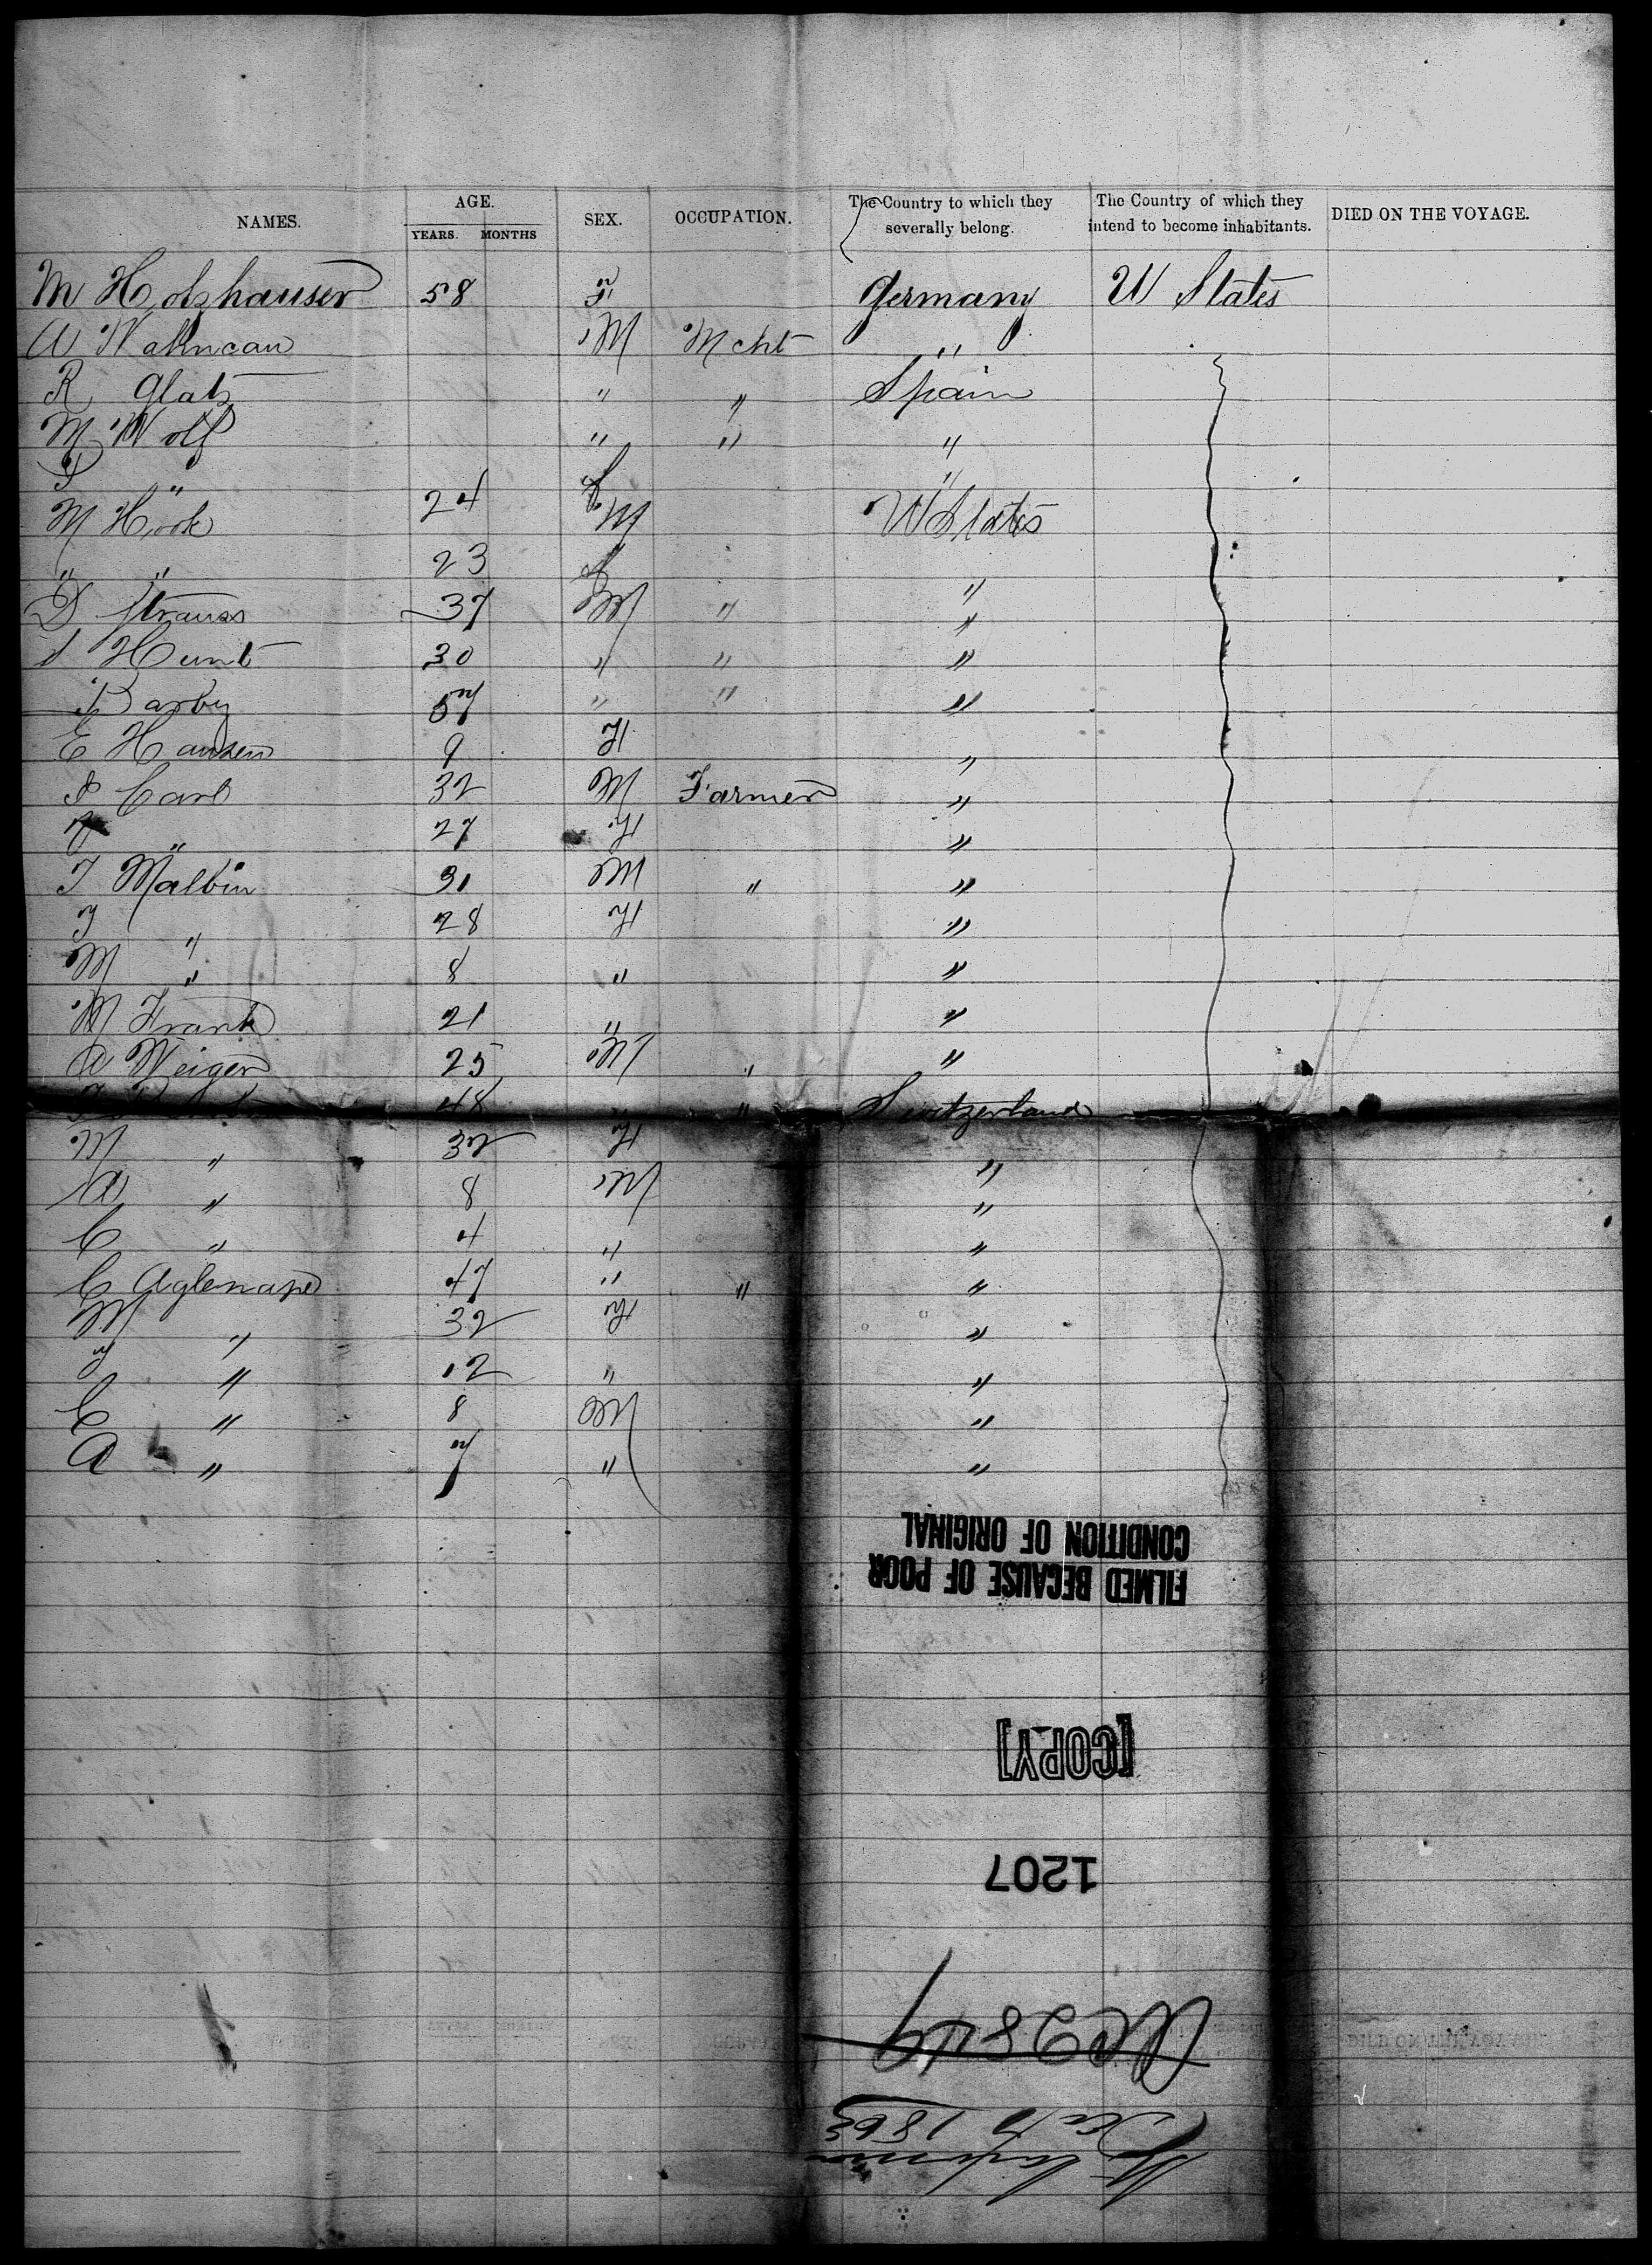 NAMES. AGE. YEARS. MONTHS SEX. OCCUPATION. The Country to which they severally belong. The Country of which they intend to become inhabitants. DIED ON THE VOYAGE.
M Holzhauser 58 F Germany U States
A M Mcht "
R Glatz " " Spain
M Wolf " " "
" f "
M Hook 24 M U States
" " 23 f "
D Strauss 37 M " "
Hunt 30 " " "
Barby 57 " " "
E Hansen 9 F "
Carl 32 M Farmer "
" 27 F "
T Malbin 31 M " "
" 28 F "
M " 8 " "
M Frank 21 " "
A Weiger 25 M " "
48 " Switzerland
M " 32 F "
A " 8 M "
C " 4 " "
C 47 " " "
M " 32 F "
" 12 " "
C " 8 M "
A " 7 " "
FILMED BECAUSE OF POOR
CONDITION OF ORIGINAL
[COPY]
1207